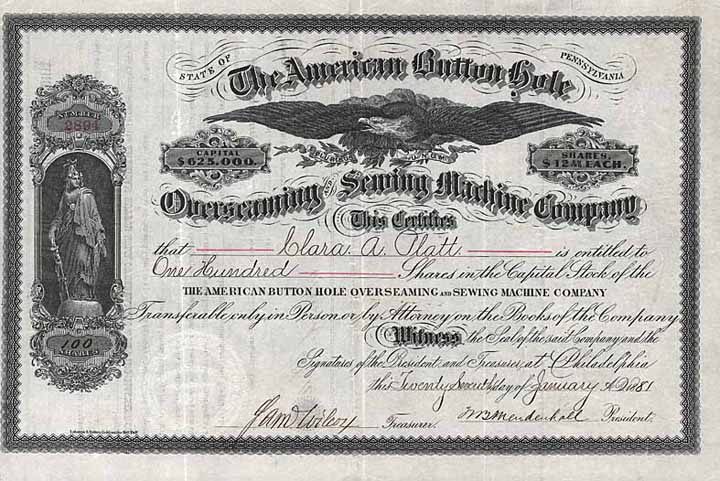 STATE OF PENNSYLVANIA
The American Button Hole
NUMBER
2894
CAPITAL
$625.000.
SHARES,
$12.50 EACH.
E PLURIBUS UNUM
Overseaming AND Sewing Machine Company
This Certifies
that Clara. A. Platt. is entitled to
One Hundred Shares in the Capital Stock of the
THE AMERICAN BUTTON HOLE OVERSEAMING AND SEWING MACHINE COMPANY
Transferable only in Person or by Attorney on the Books of the Company
Witness the Seal of the said Company and the
Signatures of the President and Treasurer, at Philadelphia
this Twenty Seventh day of January A.D. 1881
100
SHARES
Treasurer. W B Mendenhall President.